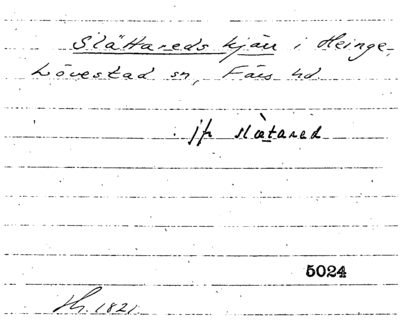 Slättareds kjärr i Heinge,
Lövestad sn, Färs hd
jfr slætared
5024
1821